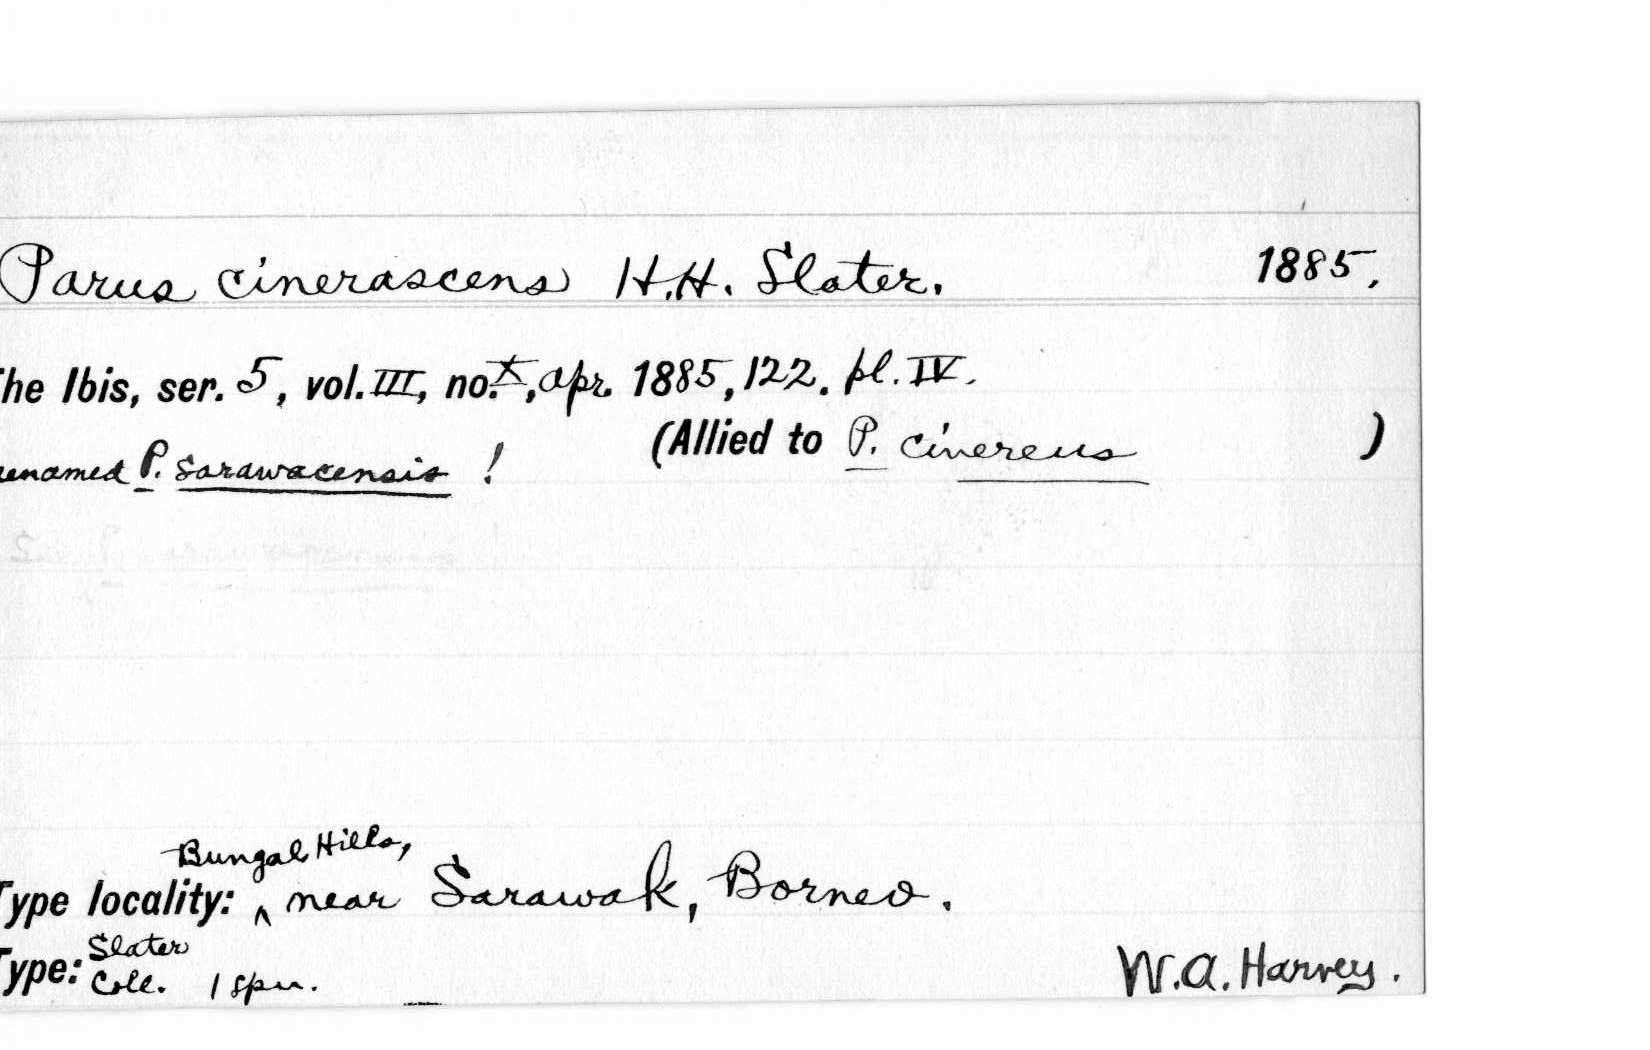 Parus cinerascens H.H. Slater. 1885.
The Ibis, ser. 5, vol. III, no. X, apr. 1885, 122. pl. IV.
(Allied to P. cinereus )
renamed P. sarawacensis !
Bungal Hills,
Type locality: ^ near Sarawak, Borneo.
Type: Slater Coll. 1 spm.
W.A. Harvey.